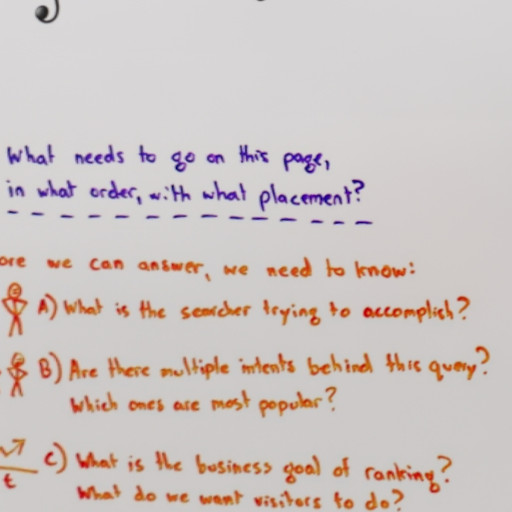 What needs to go on this page,
in what order, with what placement?
ore we can answer, we need to know:
A) What is the searcher trying to accomplish?
B) Are there multiple intents behind this query?
Which ones are most popular?
C) What is the business goal of ranking?
t
What do we want visitors to do?